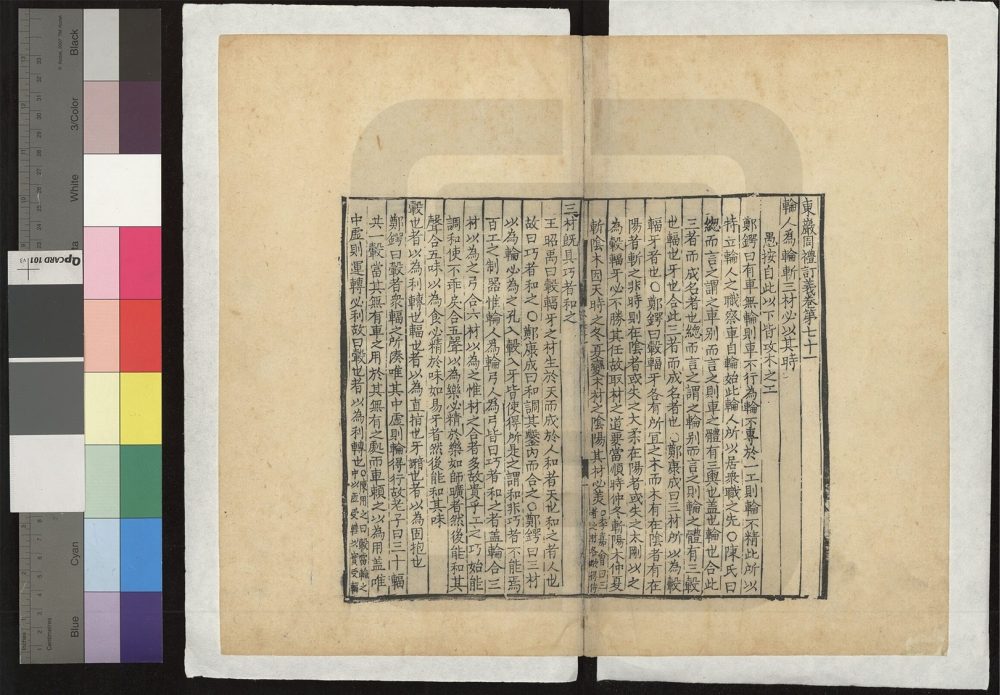 東巖周禮訂義卷第七十一
輪人為輪斬三材必以其時
愚按自此以下皆攻木之工
鄭鍔曰有車無輪則車不行為輪不專於一工則輪不精此所以
特立輪人之職察車自輪始此輪人所以居衆職之先○陳氏曰
總而言之謂之車别而言之則車之體有三輿也蓋也輪也合此
三者而成名者也總而言之謂之輪别而言之則輪之體有三轂
也輻也牙也合此三者而成名者也○鄭康成曰三材所以為轂
輻牙者也○鄭鍔曰轂輻牙各有所宜之木而木有在陰者有在
陽者斬之非時則在陰者或失之大柔在陽者或失之太剛以之
為轂輻牙必不勝其任故取材之道要當順時仲冬斬陽木仲夏
斬陰木因天時之冬夏𨫼木材之陰陽其材必美
三材既具巧者和之
王昭禹曰轂輻牙之材生於天而成於人和者天也和之者人也
故曰巧者和之○鄭康成曰和調其鑿内而合之○鄭鍔曰三材
以為輪必為之孔入轂入牙皆使得所是之謂和非巧者不能焉
百工之制器惟輪人為輪弓人為弓皆曰巧者和之者蓋輪合三
材以為之弓合六材以為之惟材之合者多故貴乎工之巧始能
調和使不乖戾合五聲以為樂必精於樂如師曠者然後能和其
聲合五味以為食必精於味如易牙者然後能和其味
轂也者以為利轉也輻也者以為直指也牙也者以為固抱也
鄭鍔曰轂者衆輻之所湊唯其中虚則輪得行故老子曰三十輻
共一轂當其無有車之用於其無有之處而車賴之以為用蓋唯
中虚則運轉必利故曰轂也者以為利轉也
Black
3/Color
White
Cyan
Blue
QPCARD 101 v3
Centimetres
Inches